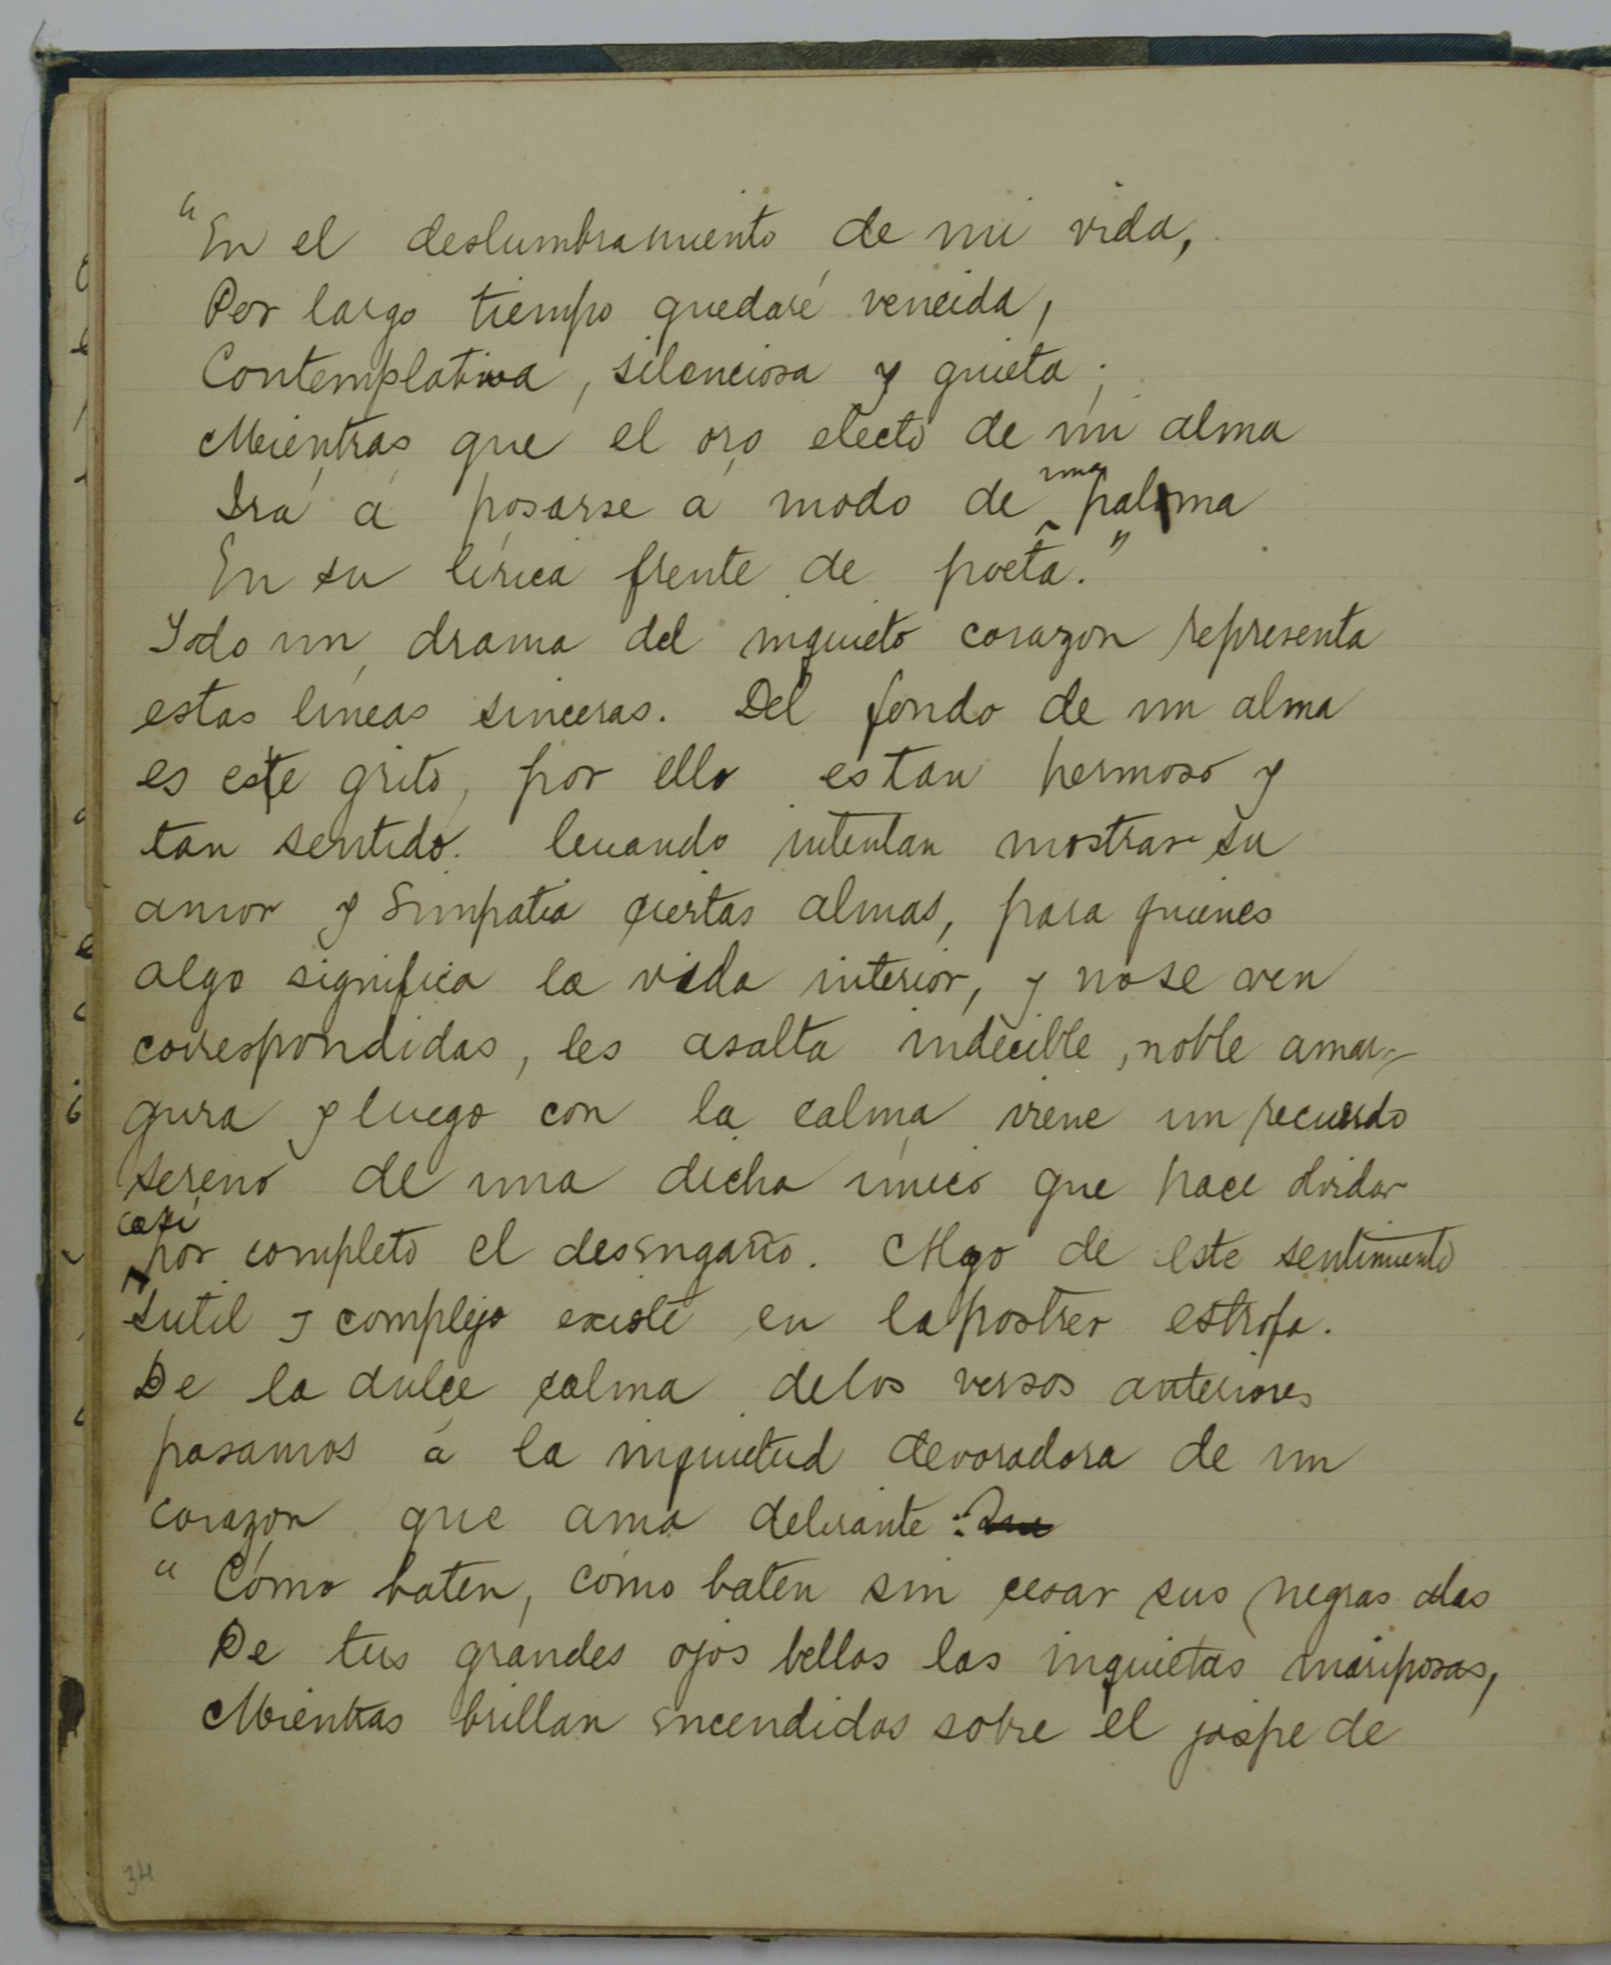 "En el deslumbramiento de mi vida,
Por largo tiempo quedaré vencida,
Contemplativa, silenciosa y quieta;
Mientras que el oro electo de mi alma
Irá á posarse á modo de una paloma
En su lírica frente de poeta."
Todo un drama del inquieto corazon representa
estas líneas sinceras. Del fondo de un alma
es este grito, por ello es tan hermoso y
tan sentido. Cuando intentan mostrar su
amor y simpatia ciertas almas, para quienes
algo significa la vida interior, y no se ven
correspondidas, les asalta indecible, noble amar-
gura y luego con la calma viene un recuerdo
sereno de una dicha única que hace olvidar
casi por completo el desengaño. Algo de este sentimiento
sutil y complejo existe en la postrer estrofa.
De la dulce calma de los versos anteriores
pasamos á la inquietud devoradora de un
corazon que ama delirante:
"Cómo baten, cómo baten sin cesar sus negras alas
De tus grandes ojos bellos las inquietas mariposas,
Mientras brillan encendidas sobre el jaspe de
34